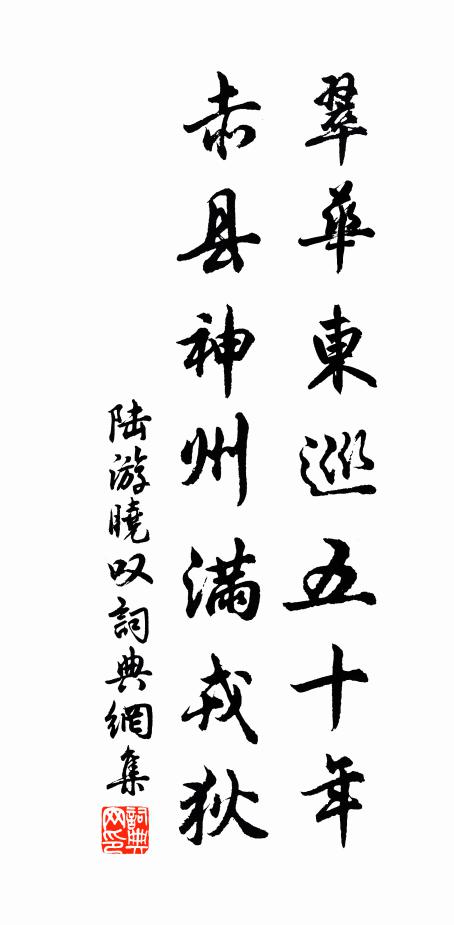 翠華東巡五十年
赤县神州滿戎狄
陆游曉叹詞典網集
詞典网印